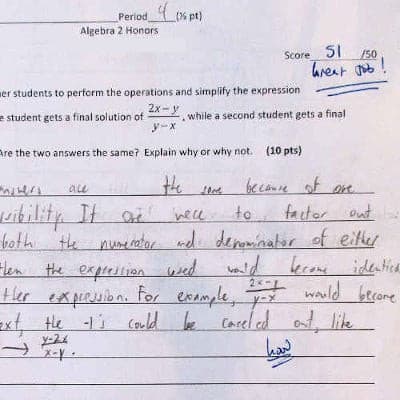 Period 4 (½ pt)
Algebra 2 Honors
Score 51 /50
Great Job!
er students to perform the operations and simplify the expression
e student gets a final solution of 2x-y / y-x , while a second student gets a final
Are the two answers the same? Explain why or why not. (10 pts)
are the same because of one
If one were to factor out
both the numerator and denominator of either
the expression used would become identical
expression. For example, 2x-y / y-x would become
the -1's could be canceled out, like
→ y-2x / x-y .
how